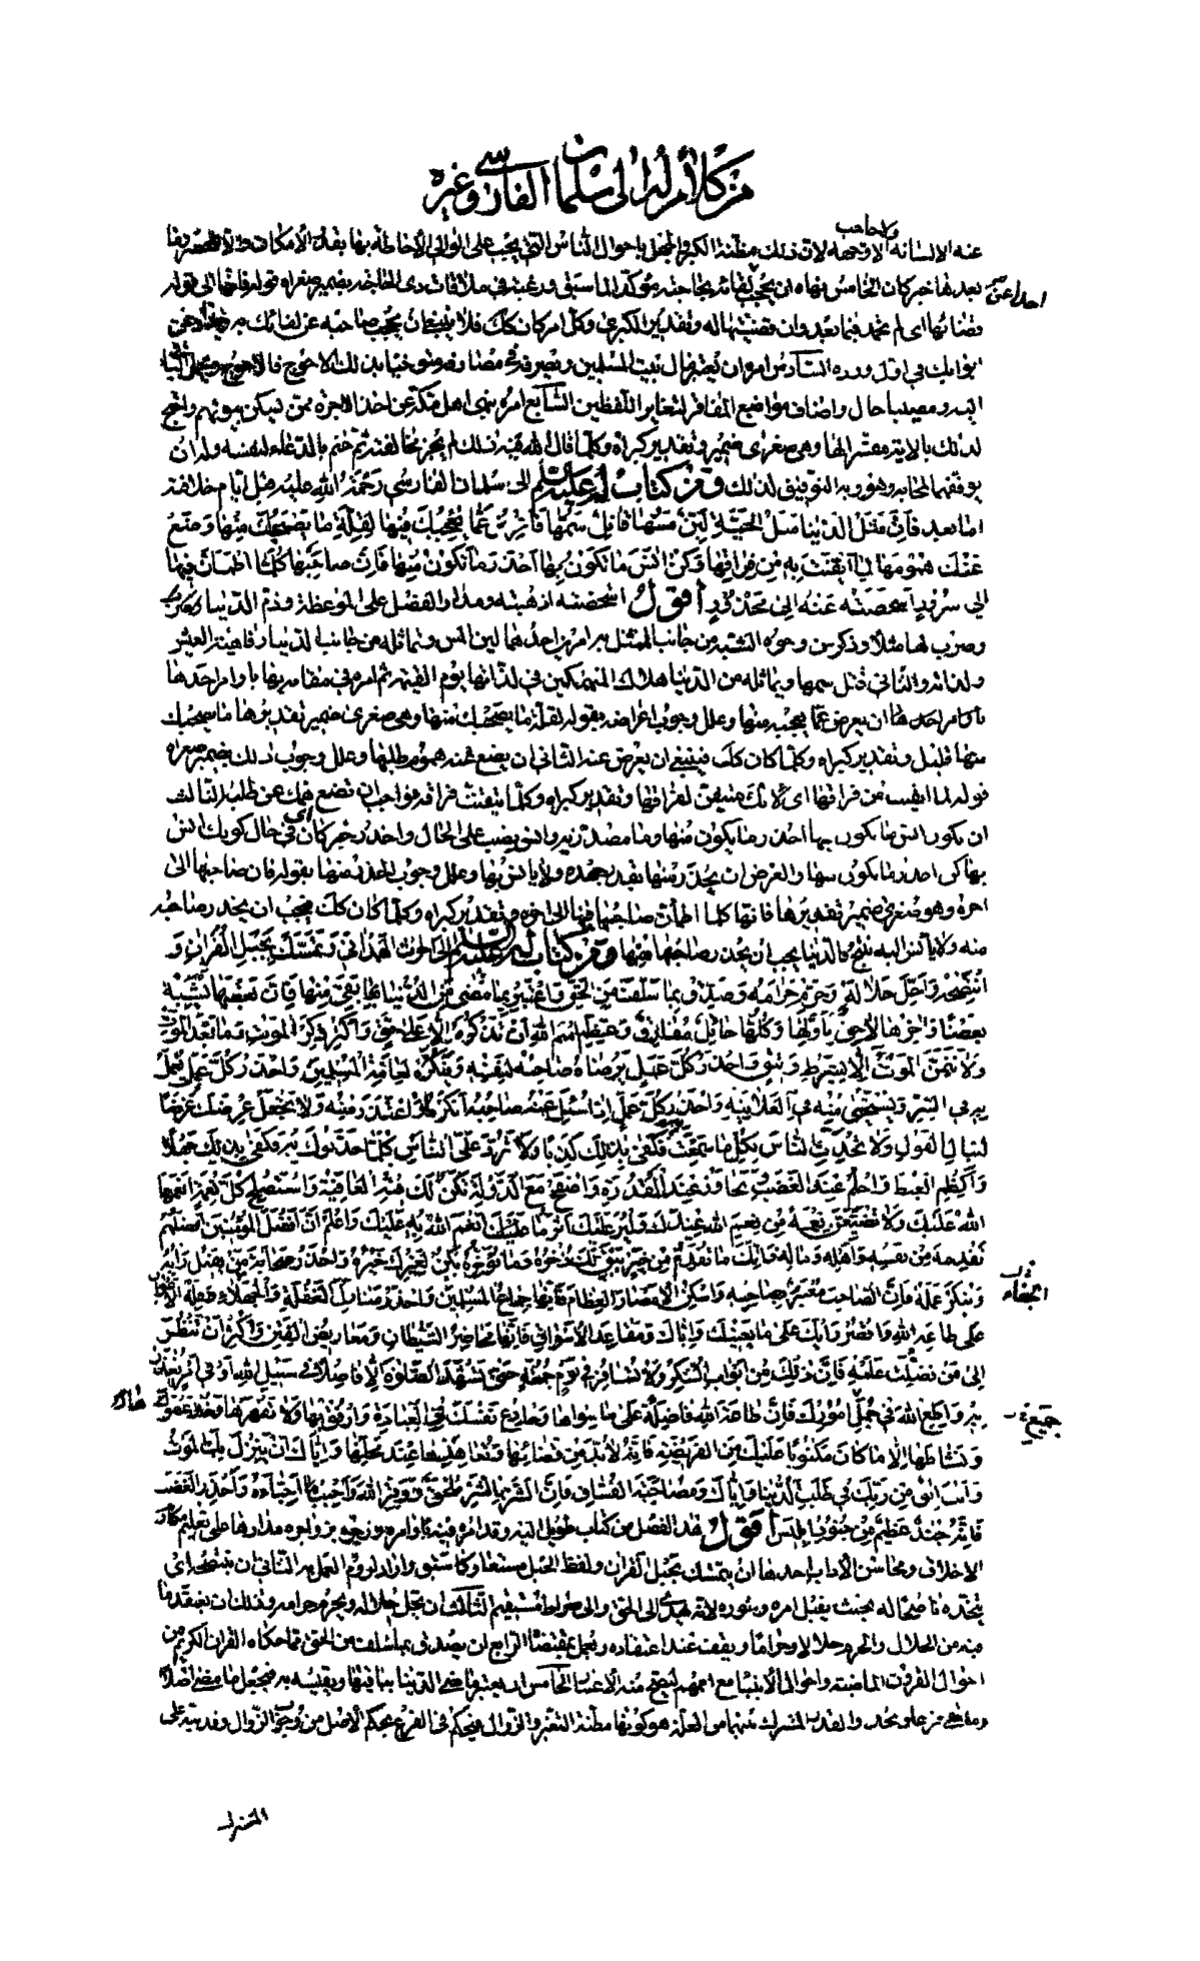 من كلام له الى سلمان الفارسي وغيره
ولا حاجب
عنه الا لسانه الا وجهه لان ذلك مظنة الكبر والجهل باحوال الناس التي يجب على الوالي الاحاطة بها بقدر الامكان
بعدها خبر كان الخامس نهاه ان يحجب عن لقائه بحاجته مؤكدا لما سبق ورغبه في ملاقات ذي الحاجة بضمير صغراه قوله فانها الى قوله
احدا عن
قضائها اى لم تحمد فيما بعد وان قضيتها له وتقدير الكبرى وكل امر كان كك فلا ينبغي ان يحجب صاحبه عن لقائك
ابوابك في اول ورده السادس امره ان يعتبر مال بيت المسلمين ويصرفه في مصارفه متوخيا بذلك الاحوج فالاحوج
ومصيبا حال واضاف مواضع المفاقر لتغاير اللفظين السابع امره بنهى اهل مكة عن اخذ الاجرة ممن يسكن بيوتهم واحتج
لذلك بالاية مفسرا لها وهى صغرى ضمير وتقدير كبراه وكلما قال الله فيه ذلك لم يجز مخالفته ثم ختم بالدعاء لنفسه وله ان
يوفقهما لمحابه وهو وبه التوفيق لذلك ومن كتاب له عليه السلام الى سلمان الفارسي رحمة الله عليه قبل ايام خلافته
اما بعد فان مثل الدنيا مثل الحية لين مسها قاتل سمها فاعرض عما يعجبك فيها لقلة ما يصحبك منها وضع
عنك همومها لما ايقنت به من فراقها وكن انس ما تكون بها احذر ما تكون منها فان صاحبها كلما اطمان فيها
الى سرور اشخصته عنه الى محذور اقول اشخصته اذهبته ومدار الفصل على الموعظة وذم الدنيا
وضرب لها مثلا وذكر من وجوه الشبه من جانب الممثل به امرين احدهما لين المس ويماثله من جانب الدنيا رفاهية العيش
ولذاته والثاني قتل سمها ويماثله من الدنيا هلاك المنهمكين في لذاتها يوم القيمة ثم امره في مقاربتها باوامر احدها
ان يعرض عما يعجبه منها وعلل وجوب اعراضه بقوله لقلة ما يصحبك منها وهى صغرى ضمير تقديرها ما يصحبك
منها قليل وتقدير كبراه وكلما كان كك فينبغي ان يعرض عنه الثاني ان يضع عنه هموم طلبها وعلل وجوب ذلك بضمير صغراه
قوله لما ايقنت من فراقها اى لانك متيقن لفراقها وتقدير كبراه وكلما تيقنت فراقه فواجب ان تضع همك عن طلبه الثالث
ان يكون انس ما يكون بها احذر ما يكون منها وما مصدرية وانس ينصب على الحال واحذر خبر كان اى في حال كونك انس
بها كن احذر ما يكون منها والغرض ان يحذر منها بقدر جهده ولا يانس بها وعلل وجوب الحذر منها بقوله فان صاحبها الى
اخره وهو صغرى ضمير تقديرها فانها كلما اطمان صاحبها فيها الى اخره وتقدير كبراه وكلما كان كك فيجب ان يحذر صاحبه
منه ولا يانس اليه ينتج فالدنيا يجب ان يحذر صاحبها منها ومن كتاب له عليه السلام الى الحارث الهمداني وتمسك بحبل القران و
انتصحه واحل حلاله وحرم حرامه وصدق بما سلف من الحق واعتبر بما مضى من الدنيا ما بقى منها فان بعضها يشبه
بعضا واخرها لاحق باولها وكلها حائل مفارق وعظم اسم الله ان تذكره الا على حق واكثر ذكر الموت وما بعد الموت
ولا تتمن الموت الا بشرط وثيق واحذر كل عمل يرضاه صاحبه لنفسه ويكره لعامة المسلمين واحذر كل عمل يعمل
به في السر ويستحيى منه في العلانية واحذر كل عمل اذا سئل عنه صاحبه انكره او اعتذر منه ولا تجعل عرضك غرضا
لنبال القول ولا تحدث الناس بكل ما سمعت فكفى بذلك كذبا ولا ترد على الناس كلما حدثوك به فكفى بذلك جهلا
واكظم الغيظ واحلم عند الغضب وتجاوز عند المقدرة واصفح مع الدولة تكن لك العاقبة واستصلح كل نعمة انعمها
الله عليك ولا تضيعن نعمة من نعم الله عندك ولير عليك اثر ما انعم الله به عليك واعلم ان افضل المؤمنين افضلهم
تقدمة من نفسه واهله وماله فانك ما تقدم من خير يبق لك ذخره وما تؤخره يكن لغيرك خيره واحذر صحابة من يفيل رايه
وينكر عمله فان الصاحب معتبر بصاحبه واسكن الامصار العظام فانها جماع المسلمين واحذر منازل الغفلة والجهلاء وقلة الاعوان
الجفاء
على طاعة الله واقصر رايك على ما يعنيك واياك ومقاعد الاسواق فانها محاضر الشيطان ومعاريض الفتن واكثر ان تنظر
الى من فضلت عليه فان ذلك من ابواب الشكر ولا تسافر في يوم جمعة حتى تشهد الصلوة الا فاصلا في سبيل الله او في امر تعذر
به واطع الله في جمل امورك فان طاعة الله فاضلة على ما سواها وخادع نفسك في العبادة وارفق بها ولا تقهرها وخذ عفوها
جميع
ونشاطها الا ما كان مكتوبا عليك من الفريضة فانه لا بد من قضائها وتعاهدها عند محلها واياك ان ينزل بك الموت
وانت ابق من ربك في طلب الدنيا واياك ومصاحبة الفساق فان الشر بالشر ملحق ووقر الله واحبب احباءه واحذر الغضب
فانه جند عظيم من جنود ابليس اقول هذا الفصل من كتاب طويل اليه وقد امره فيه باوامر وزجره بزواجر مدارها على تعليم مكارم
الاخلاق ومحاسن الاداب احدها ان يتمسك بحبل القران ولفظ الحبل مستعار كما سبق واراد لزوم العمل به الثاني ان ينتصحه اى
يتخذه ناصحا له بحيث يقبل امره وشوره لانه يهدى الى الحق والى صراط مستقيم الثالث ان يحل حلاله ويحرم حرامه وذلك ان يعتقد ما
فيه من الحلال والحرام حلالا وحراما ويقف عند اعتقاده ويعمل بمقتضاه الرابع ان يصدق بما سلف من الحق مما حكاه القران الكريم من
احوال القرون الماضية واحوال الانبياء مع اممهم ليصح منه الاعتبار الخامس ان يعتبر ماضى الدنيا بباقيها ويقيسه به فيجعل ما مضى اصلا
وما بقى فرعا والقدر المشترك بينهما من العلة هو كونها مظنة التغير والزوال فيحكم في الفرع بحكم الاصل من وجوب الزوال